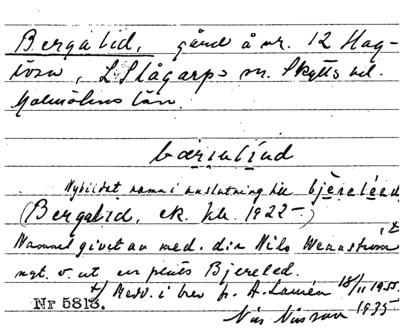 Bergalid, gård å nr. 12 Hag-
torn, L. Slågarps sn. Skytts hd.
Malmöhus län.
bærialiud
Nybildat namn i anslutning till bjèreléed
(Bergalid, ek. bl. 1922 —)
Namnet givet av med. dir Nils Wennström
ngt. v. ut en plats Bjereled.
Medd. i brev fr. A. Laurén 18/11 1935.
Nr 5813.
Nils Nilsson 1935